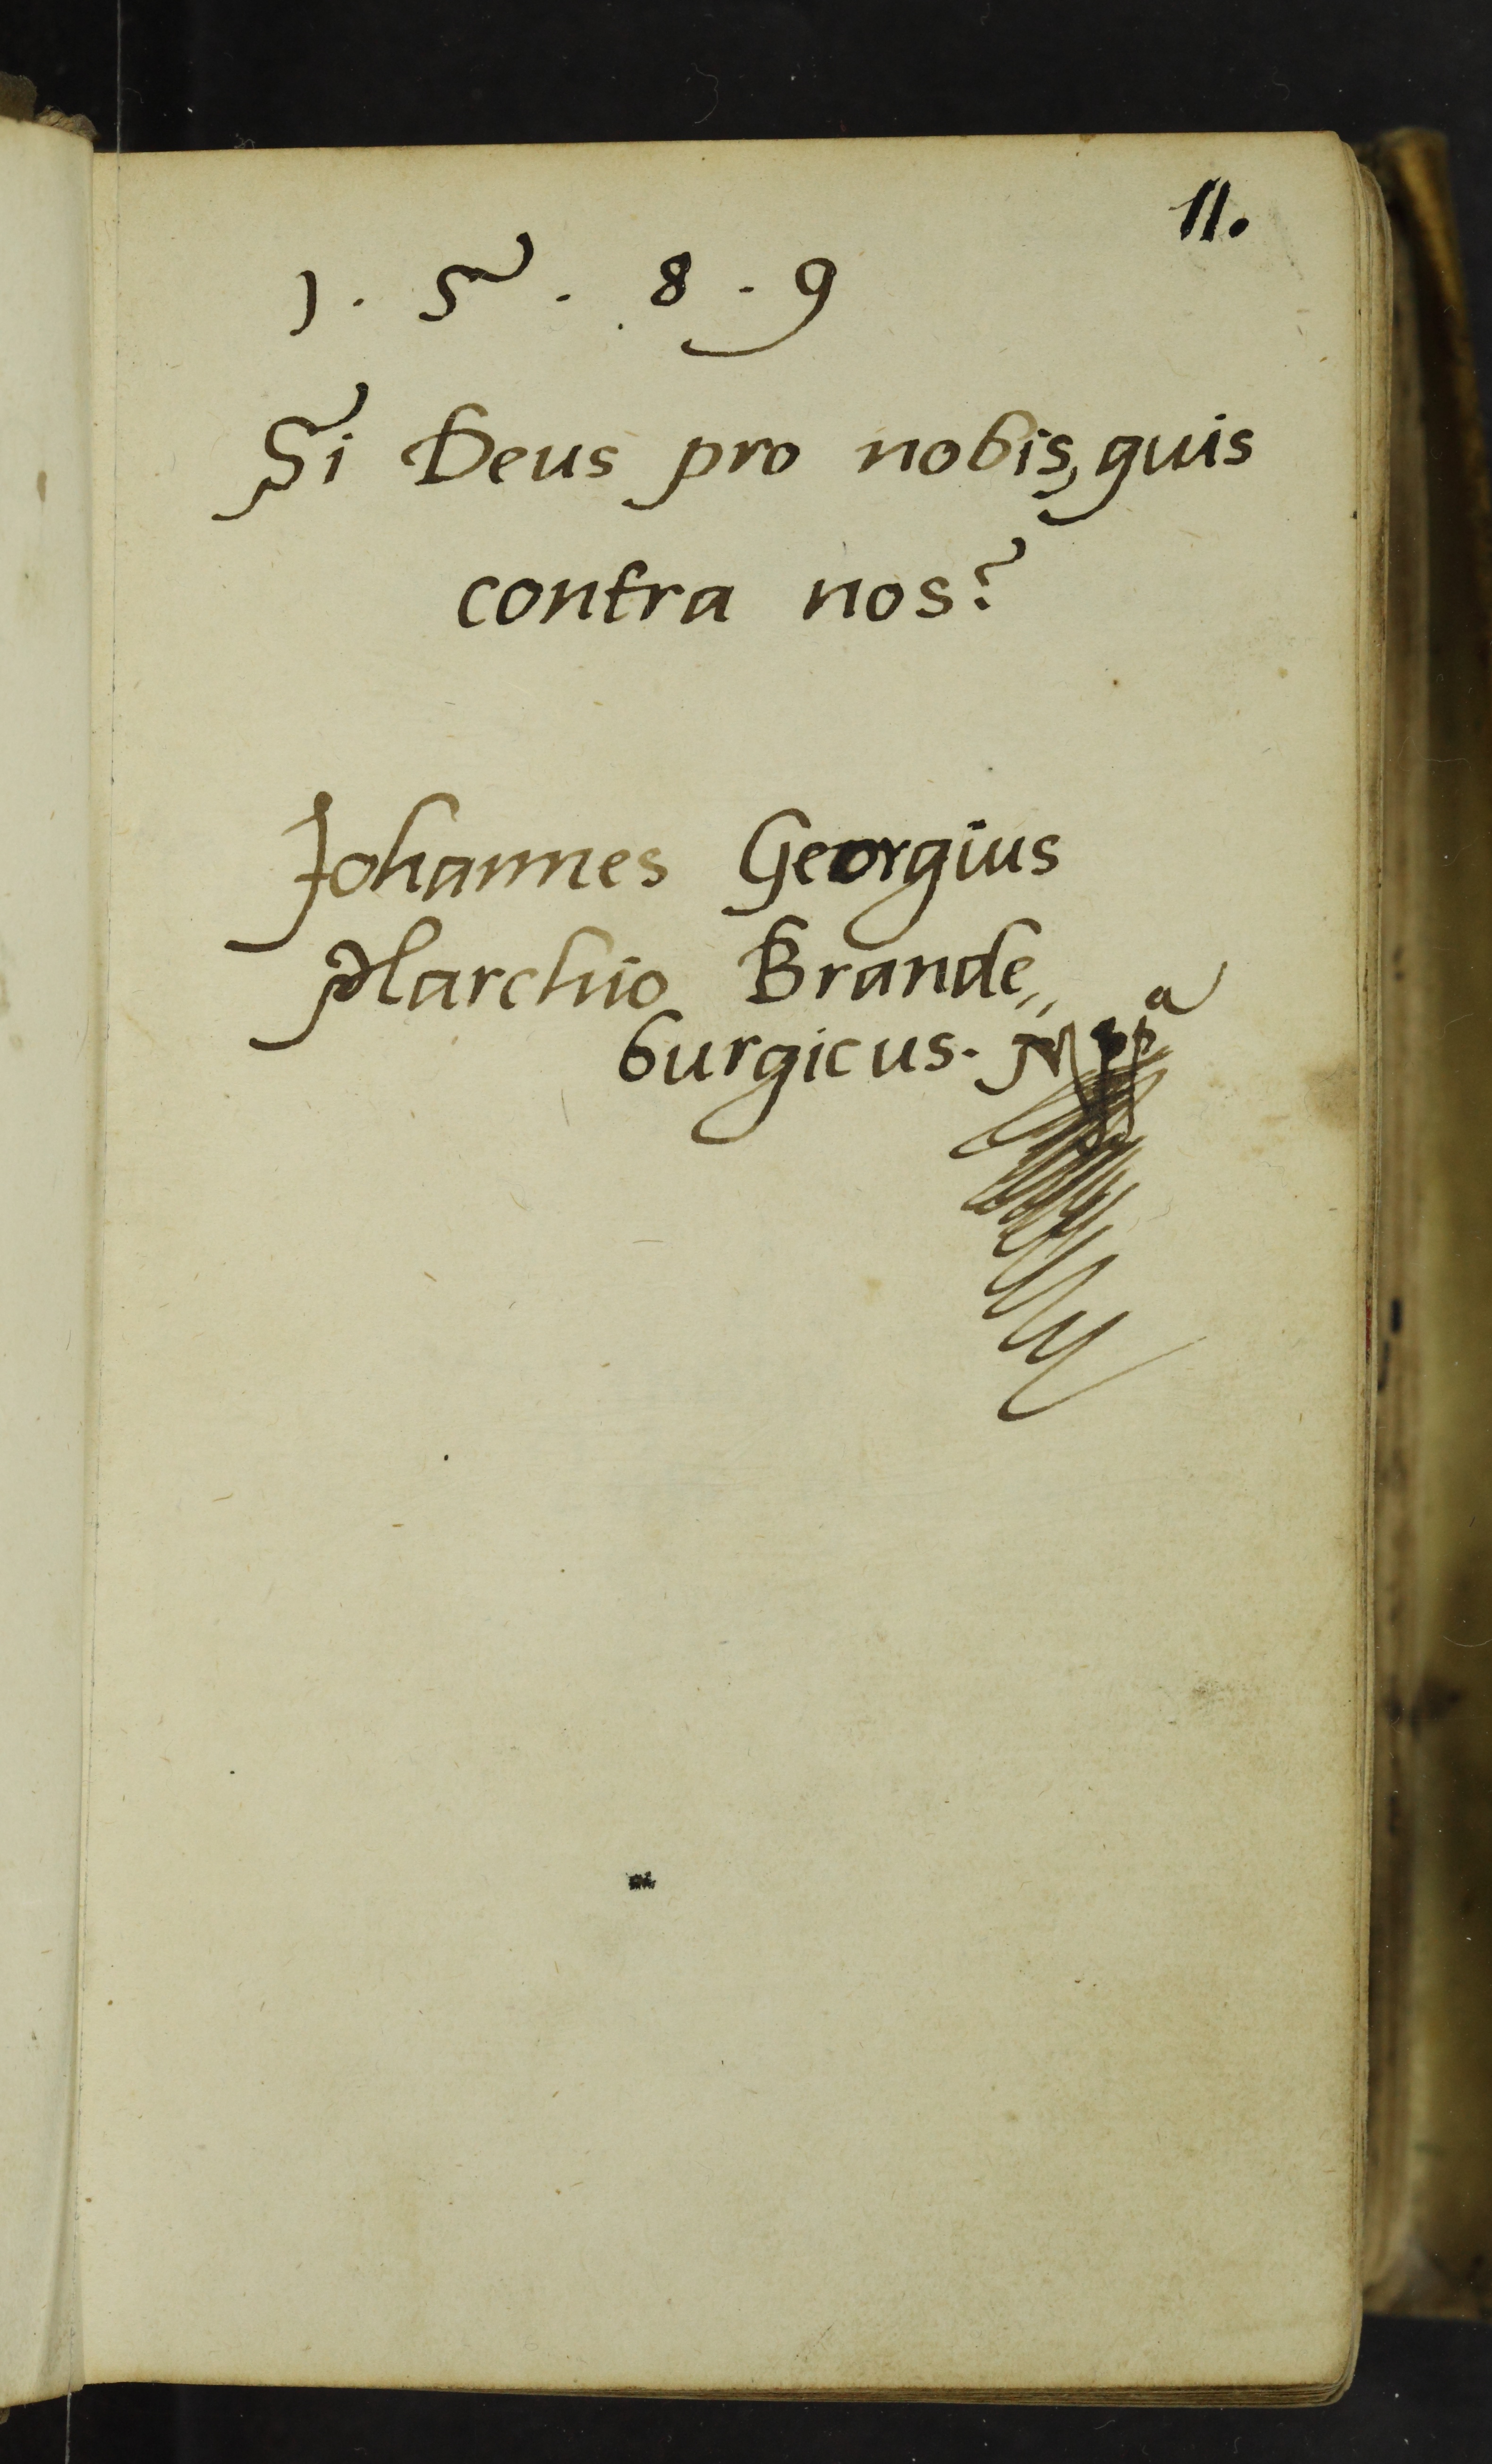 11.
1 . 5 . 8 . 9
Si Deus pro nobis, quis
contra nos?
Johannes Georgius
Marchio Brande„
burgicus.